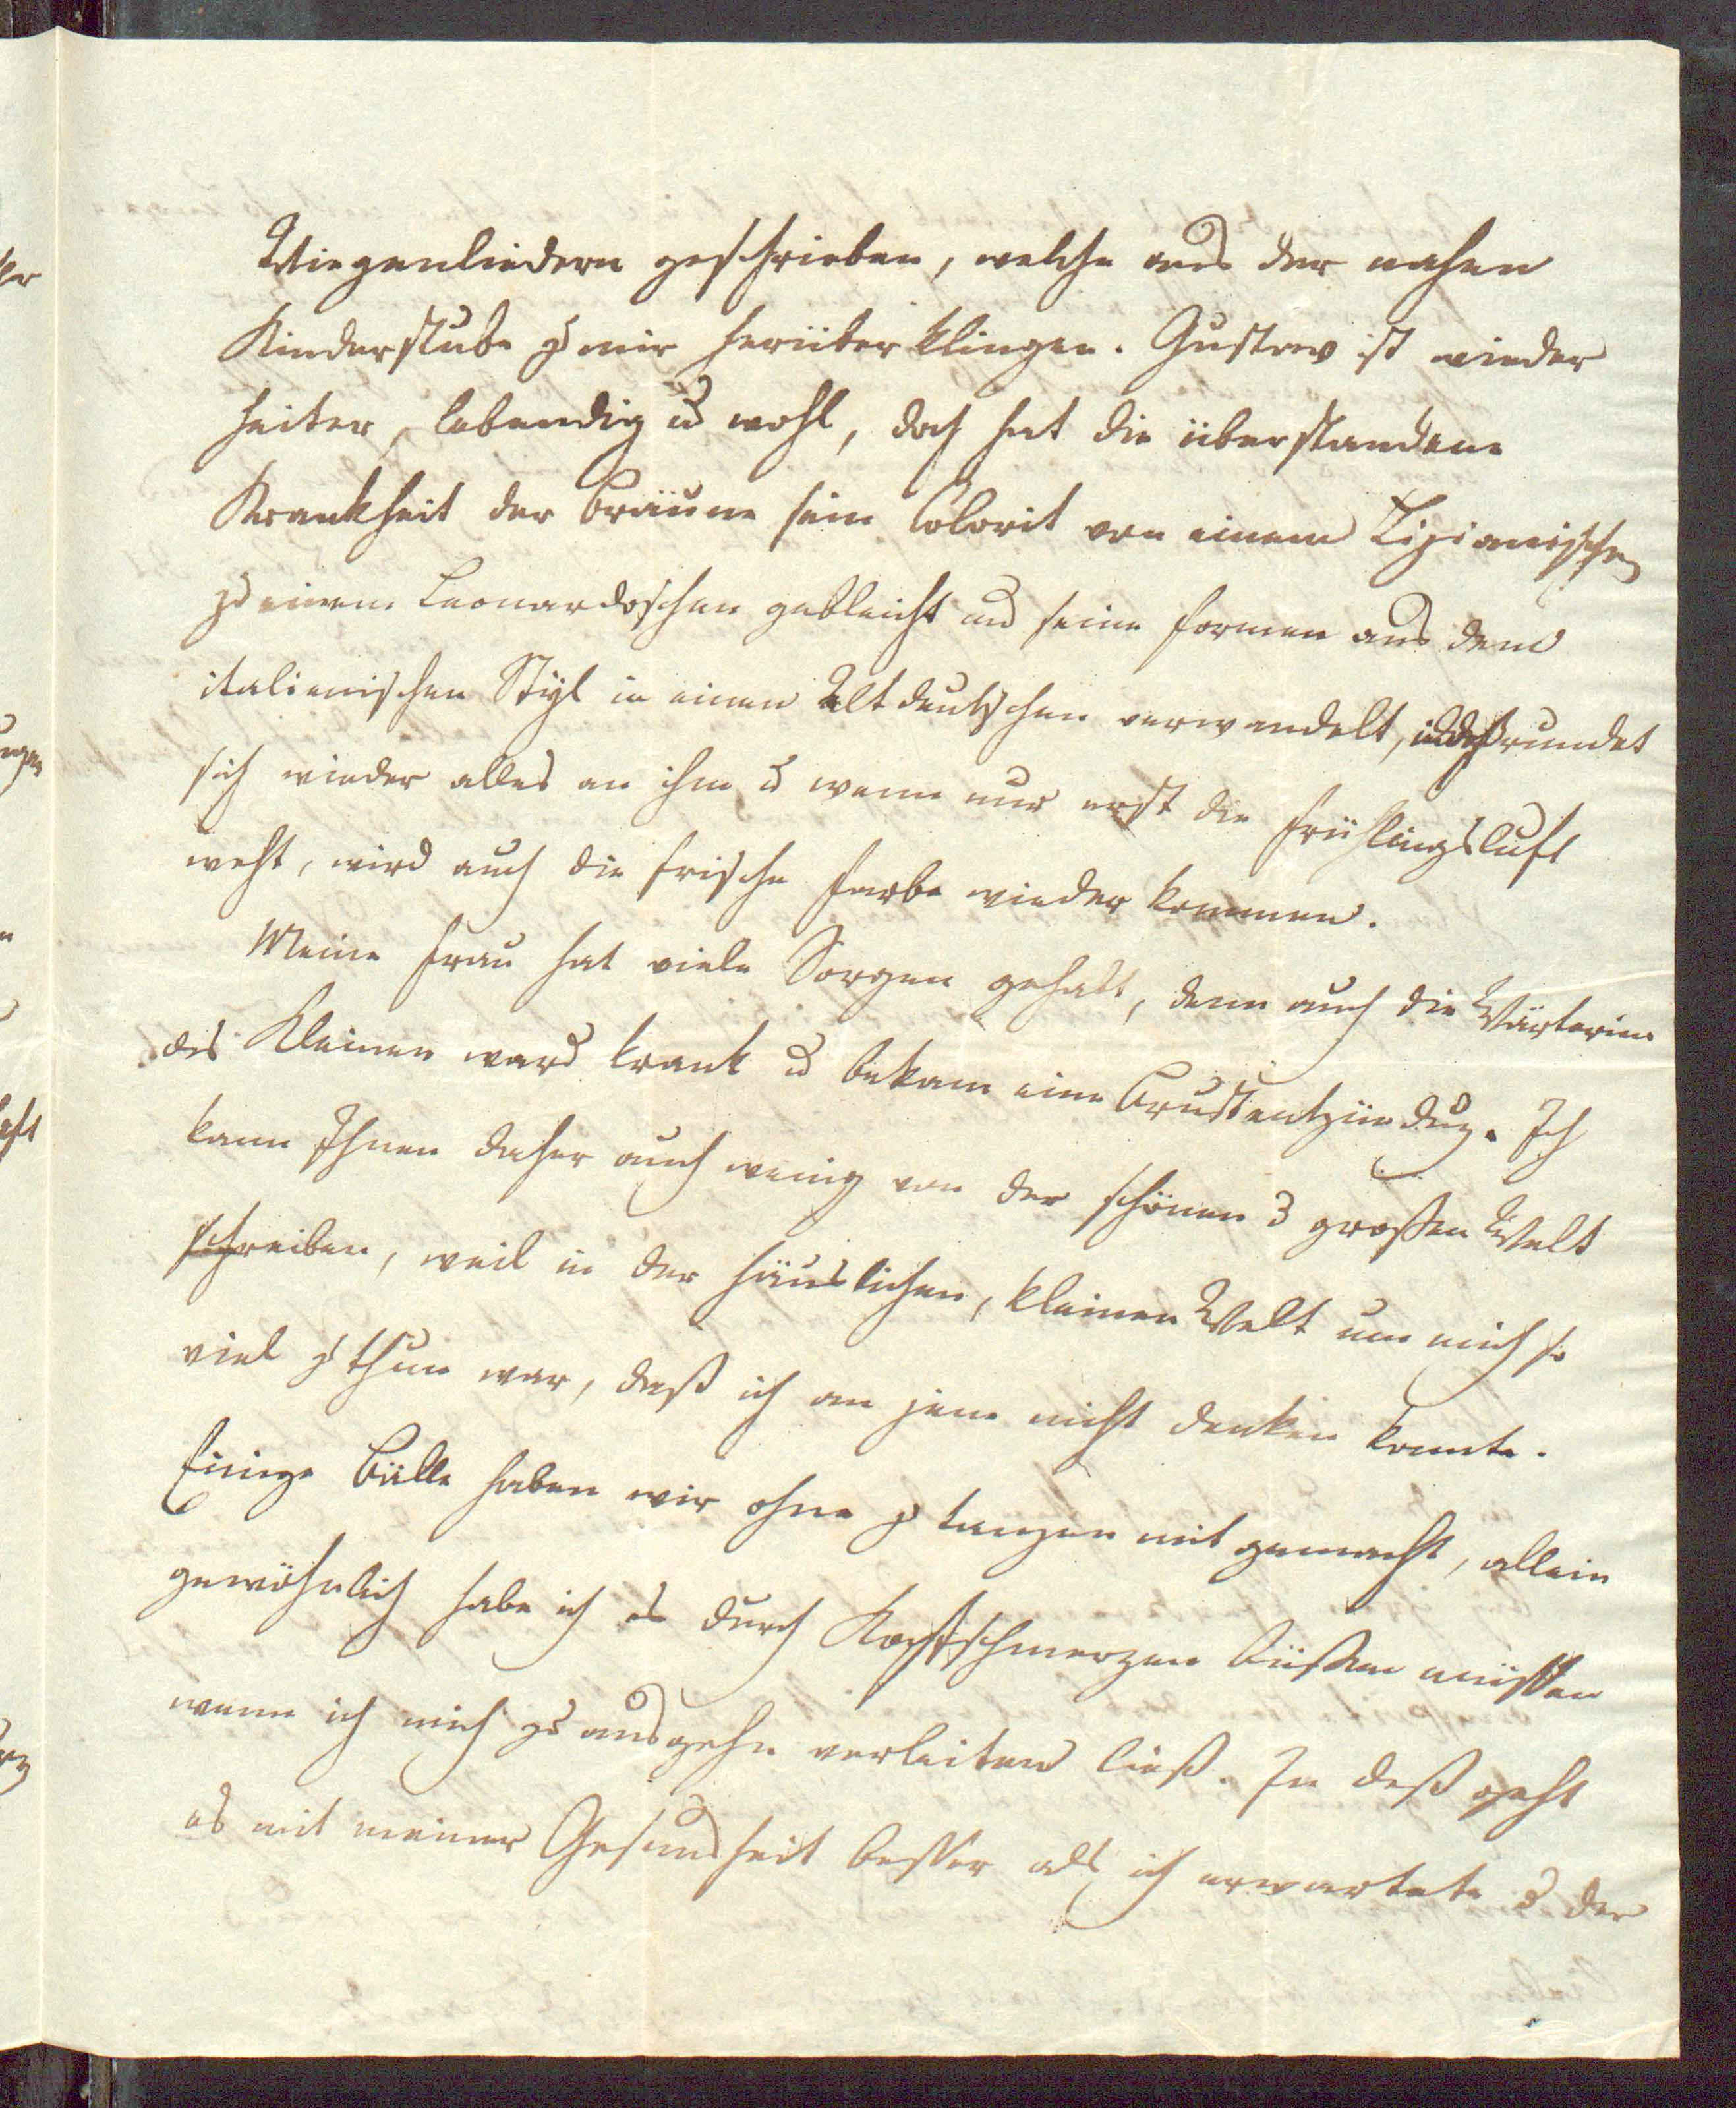 Wiegenliedern geschrieben, welche aus der nahen
Kinderstube zu mir herüber klingen. Gustav ist wieder
heiter, lebendig u wohl, doch hat die überstandene
Krankheit der Bräune sein Colorit von einem Tizianischen
zu einem Leonardoschen gebleicht und seine Formen aus dem
italienischen Styl in einen Altdeutschen verwandelt, indeß rundet
sich wieder alles an ihm u wenn nur erst die Frühlingsluft
weht, wird auch die frische Farbe wieder kommen.
Meine Frau hat viele Sorgen gehabt, denn auch die Wärterinn
des Kleinen ward krank u bekam eine Brustentzündug. Ich
kann Ihnen daher auch wenig von der schönen u großen Welt
schreiben, weil in der häuslichen, kleinen Welt um mich so
viel zu thun war, daß ich an jene nicht denken konnte.
Einige Bälle haben wir ohne zu tanzen mit gemacht, allein
gewöhnlich habe ich es durch Kopfschmerzen büßen müssen
wenn ich mich zu ausgehn verleiten ließ. In deß geht
es mit meiner Gesundheit besser als ich erwartete u der